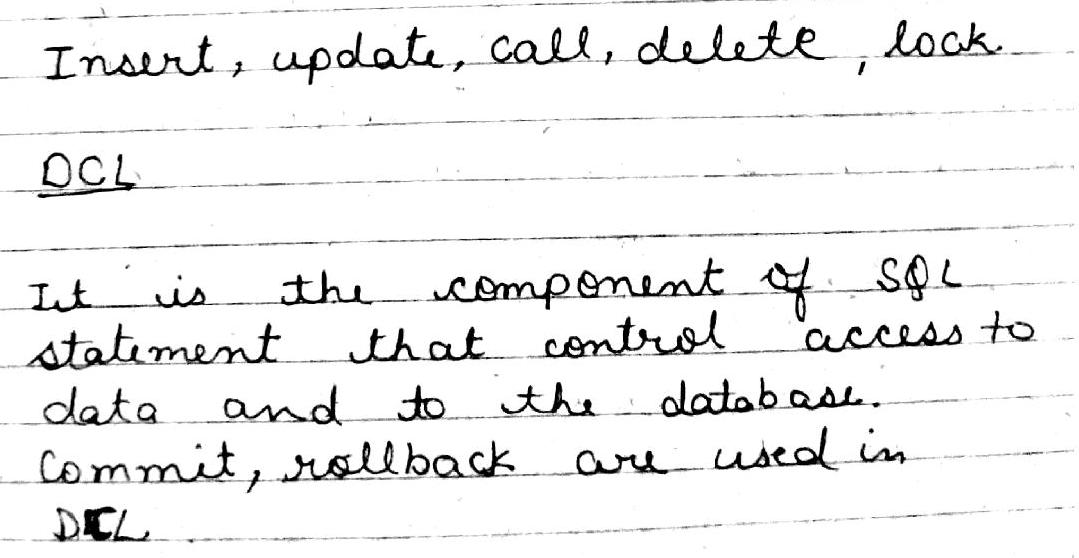 Insert, update, call, delete, lock.
DCL
It is the component of SQL
statement that control access to
data and to the database.
Commit, rollback are used in
DCL.